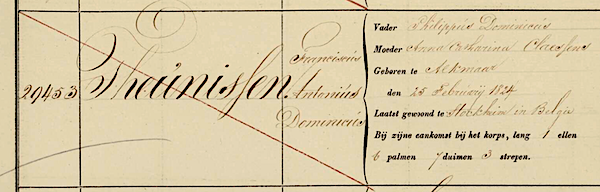 29453 Theunissen Franciscus Antonius Dominicus
Vader Philippus Dominicus
Moeder Anna Catharina Claessens
Geboren te Alkmaar
den 25 Februarij 1824
Laatst gewoond te Stockheim in België
Bij zijne aankomst bij het korps, lang 1 ellen
6 palmen 7 duimen 3 strepen.